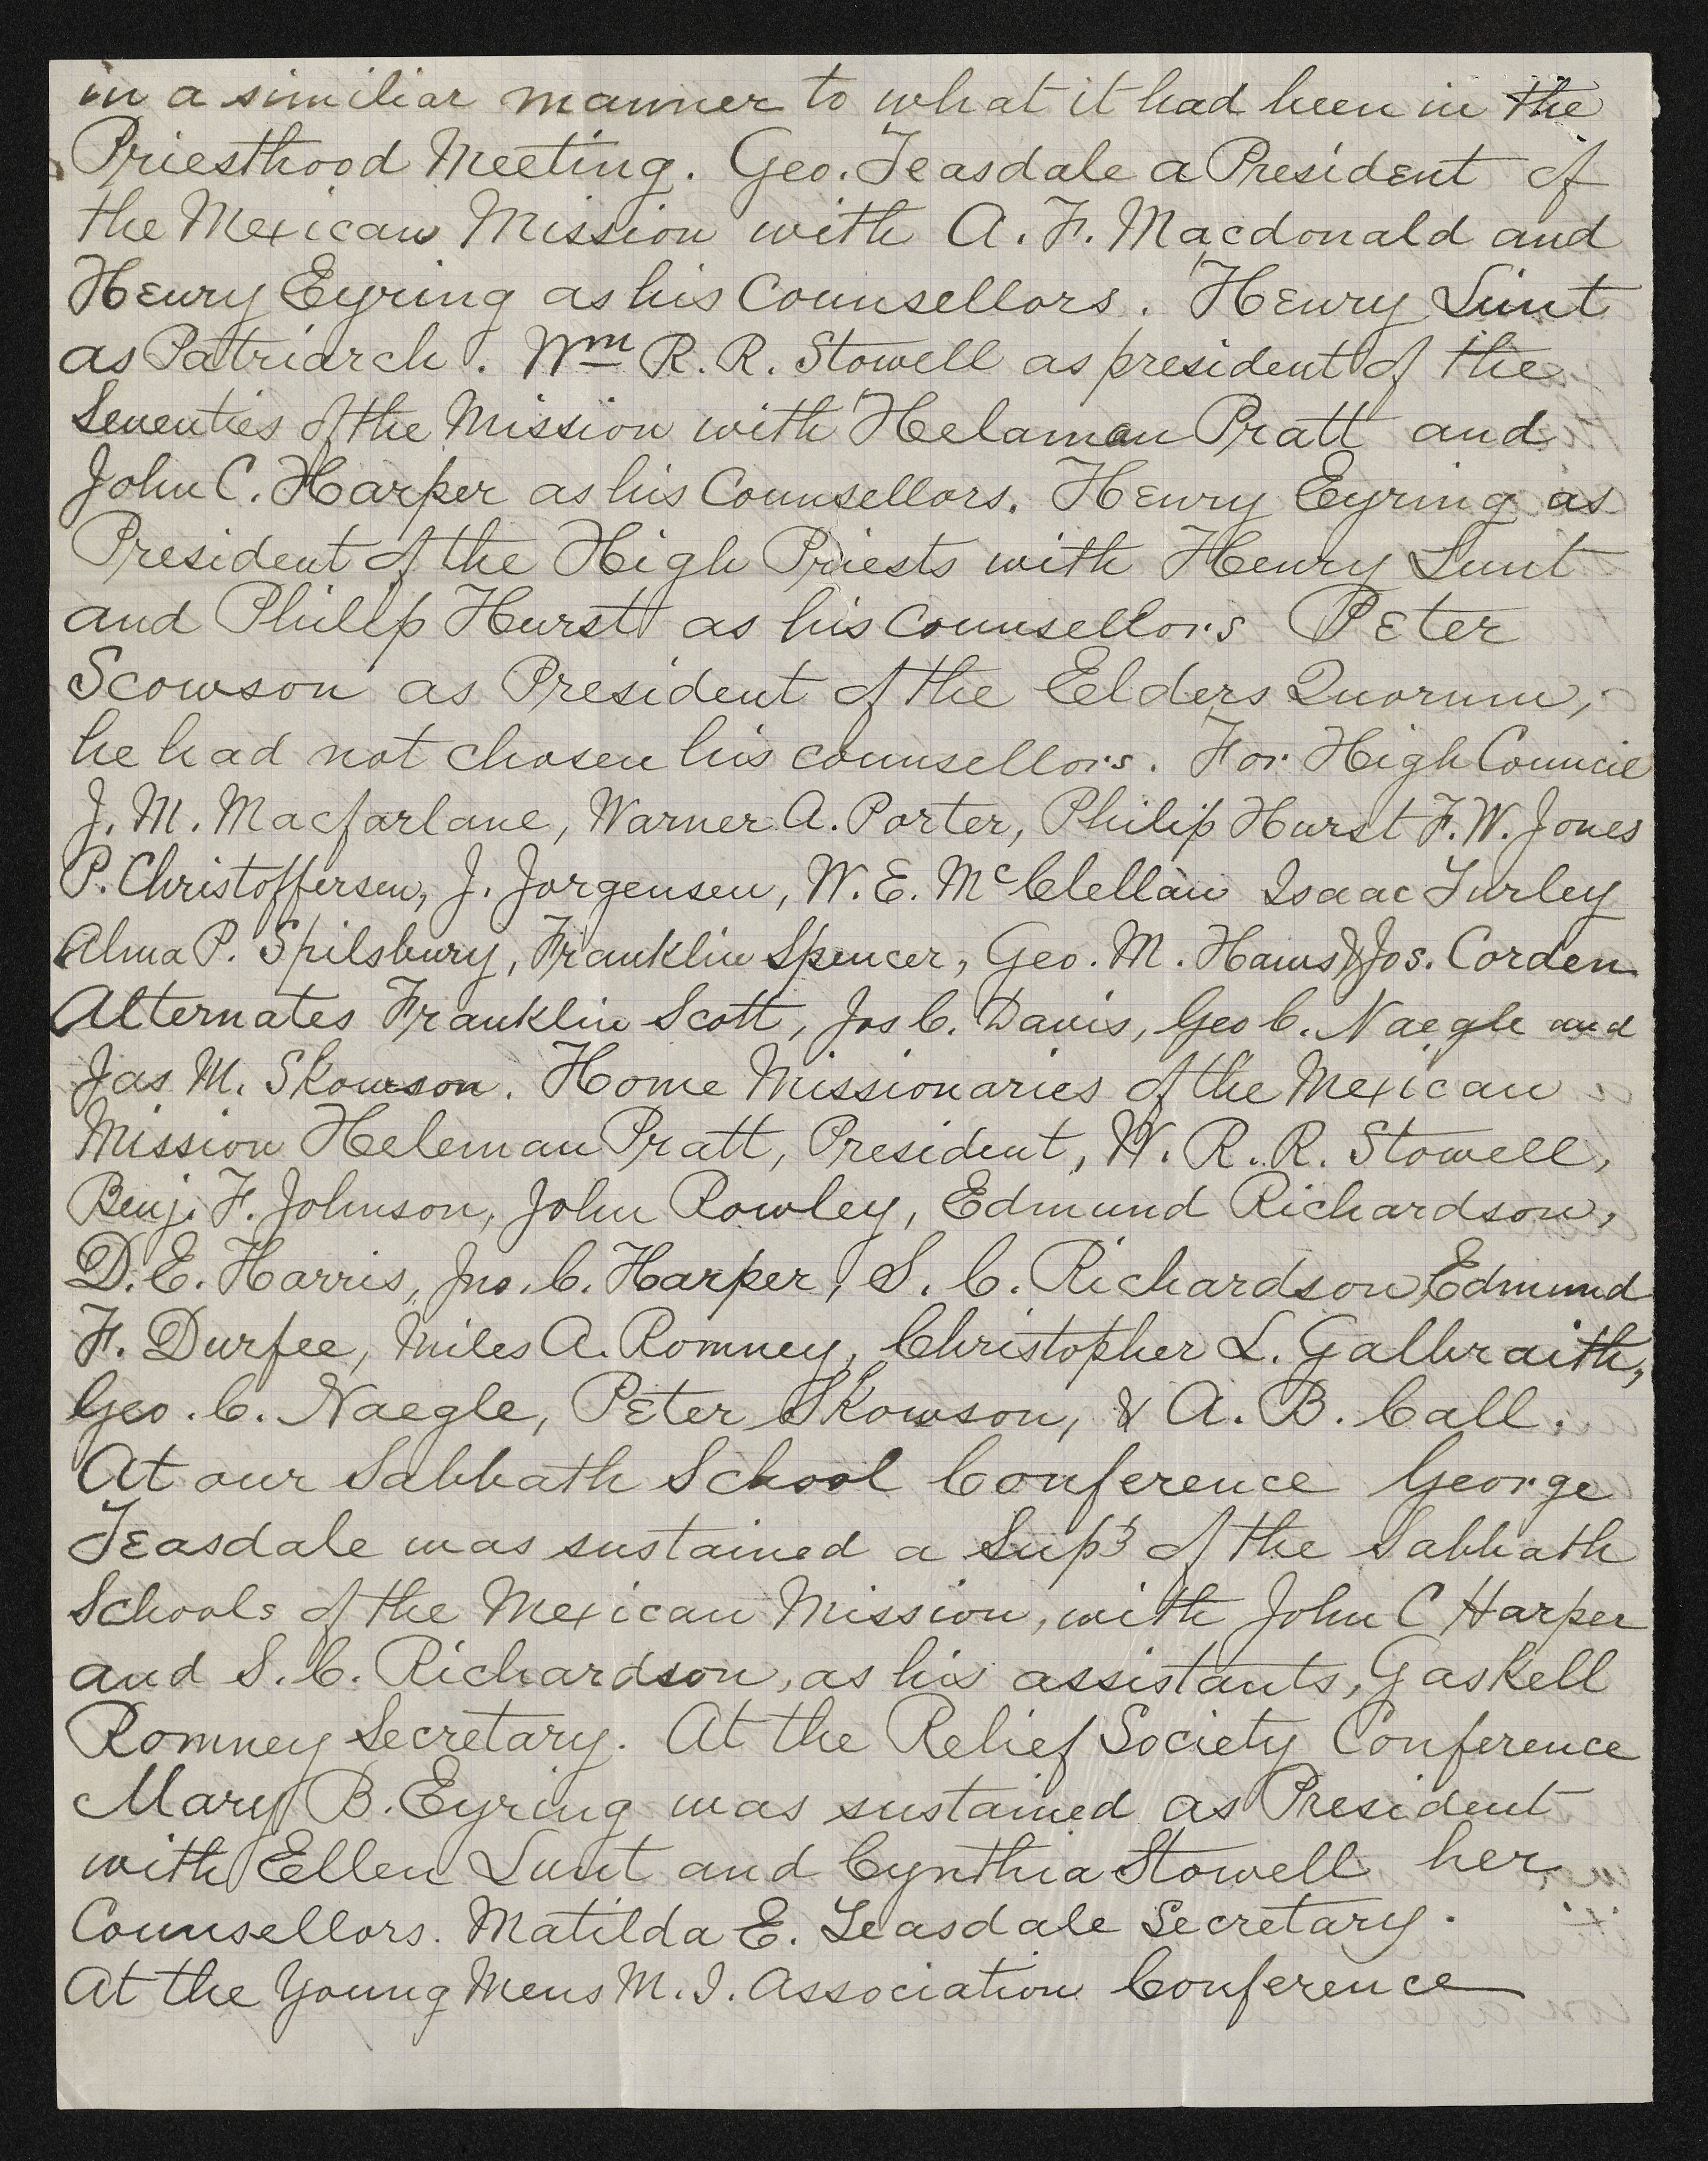 in a similiar manner to what it had been in the
Priesthood Meeting. Geo. Teasdale a President of
the Mexican Mission with A. F. Macdonald and
Henry Eyring as his Counsellors. Henry Lunt
as Patriarch. Wm R. R. Stowell as president of the
Seventies of the Mission with Helaman Pratt and
John C. Harper as his Counsellors. Henry Eyring as
President of the High Priests with Henry Lunt
and Philip Hurst as his Counsellors Peter
Scowson as President of the Eelders Quorum,
he had not chosen his counsellors. For High Council
J. M. Macfarlane, Warner A. Porter, Philip Hurst F. W. Jones
P. Christoffersen, J. Jorgensen, W. E. McClellan Isaac Turley
Alma P. Spilsbury, Franklin Spencer, Geo. M. Haws & Jos. Corden
Alternates Franklin Scott, Jas C. Davis, Geo C. Naegle and
Jas M. Skowson. Home Missionaries of the Mexican
Mission Heleman Pratt, President, W. R. R. Stowell,
Benj. F. Johnson, John Rowley, Edmund Richardson,
D. E. Harris, Jno. C. Harper, S. C. Richardson, Edmund
F. Durfee, Miles A. Romney, Christopher L. Galbraith,
Geo. C. Naegle, Peter Skowson, & A. B. Call.
At our Sabbath School Conference George
Teasdale was sustained a Supt of the Sabbath
Schools of the Mexican Mission, with John C Harper
and S. C. Richardson, as his assistants, Gaskell
Romney Secretary. At the Relief Society Conference
Mary B. Eyring was sustained as President
with Ellen Lunt and Cynthia Stowell her
Counsellors. Matilda E. Teasdale Secretary.
At the Young Mens M. I. Association Conference